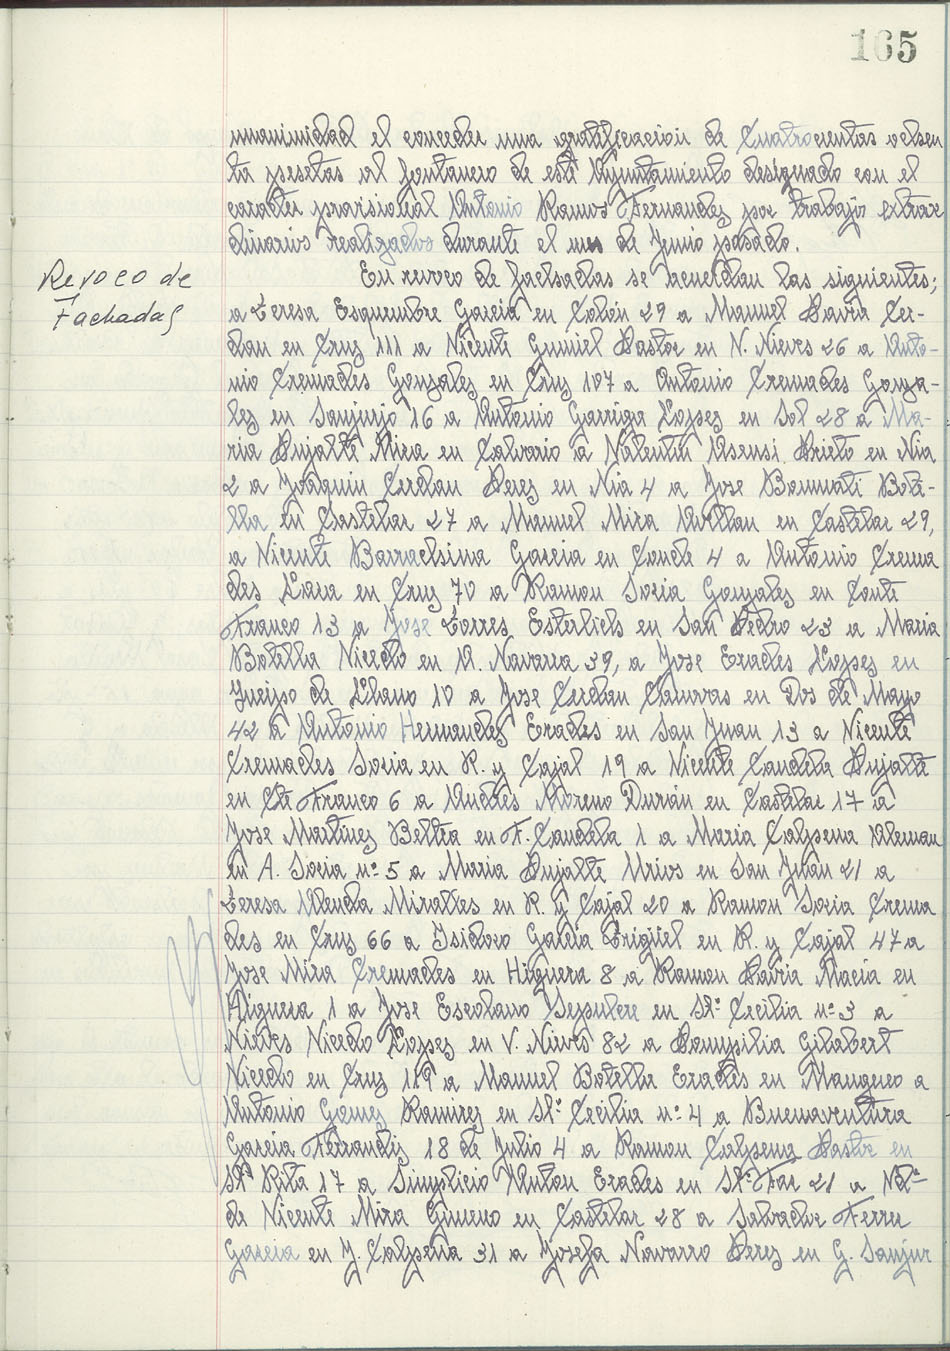 165
unanimidad el conceder una gratificacion de Cuatrocientas ochen
ta pesetas al fontanero de este Ayuntamiento designado con el
caracter provisional Antonio Ramos Fernandez por trabajos extraor
dinarios realizados durante el mes de Junio pasado.
Revoco de
Fachadas
En revoco de fachadas se acuerdan las siguientes;
a Teresa Esquembre Garcia en Colón 29 a Manuel Davia Cer-
dan en Cruz 111 a Vicente Gumiel Pastor en V. Nieves 26 a Anto-
nio Cremades Gonzalez en Cruz 107 a Antonio Cremades Gonza-
lez en Sanjurjo 16 a Antonio Garriga Lopez en Sol 28 a Ma-
ria Pujalte Mira en Calvario a Valentin Asensi Prieto en Nia
2 a Joaquin Cerdan Perez en Nia 4 a Jose Bonmati Bote-
lla en Castelar 27 a Manuel Mira Avellan en Castelar 29,
a Vicente Barrachina Garcia en Conde 4 a Antonio Crema
des Lara en Cruz 70 a Ramon Soria Gonzalez en Conte
Franco 13 a Jose Torres Esterlichs en San Pedro 23 a Maria
Botella Vicedo en A. Navarra 39, a Jose Erades Lopez en
Queipo de Llano 10 a Jose Cerdan Canovas en Dos de Mayo
42 a Antonio Hernandez Erades en San Juan 13 a Vicente
Cremades Soria en R. y Cajal 19 a Vicente Candela Pujalte
en Cte Franco 6 a Andres Moreno Durán en Castelar 17 a
Jose Martinez Beltra en F. Candela 1 a Maria Calpena Aleman
en A. Soria nº 5 a Maria Pujalte Urios en San Juan 21 a
Teresa Alenda Miralles en R. y Cajal 20 a Ramon Soria Crema
des en Cruz 66 a Isidoro Garcia Brigüel en R. y Cajal 47 a
Jose Mira Cremades en Higuera 8 a Ramon Davia Macia en
Higuera 1 a Jose Escolano Sepulcre en Stª Cecilia nº 3 a
Nieves Vicedo Lopez en V. Nieves 82 a Pompilia Gilabert
Vicedo en Cruz 119 a Manuel Botella Erades en Manguco a
Antonio Gomez Ramirez en Stª Cecilia nº 4 a Buenaventura
Garcia Ferrandiz 18 de Julio 4 a Ramon Calpena Pastor en
Stª Rita 17 a Simplicio Anton Erades en Stª Faz 21 a Vdª
de Vicente Mira Gimeno en Castelar 28 a Salvador Ferru
Garcia en J. Calpena 31 a Josefa Navarro Perez en G. Sanjur